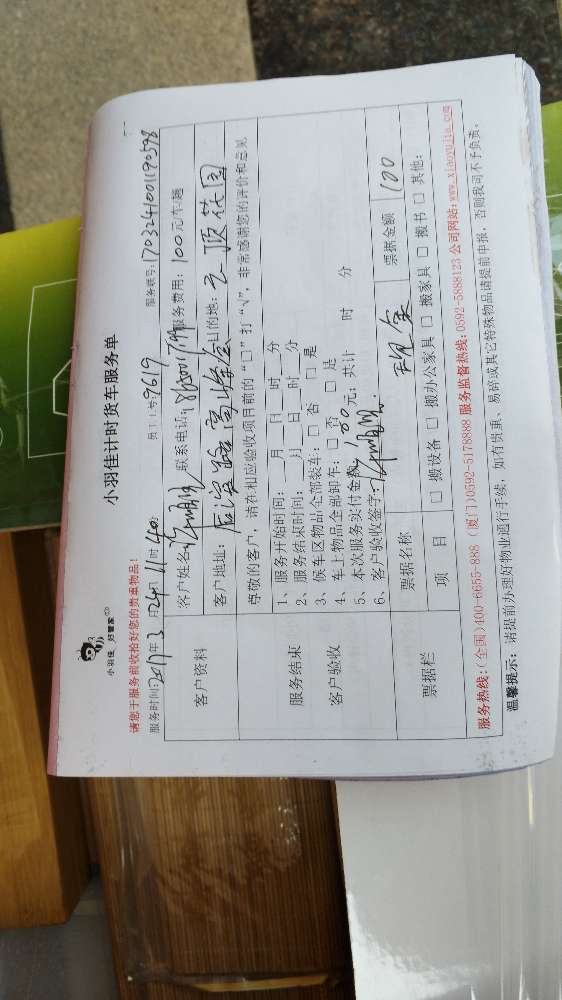 小羽佳 好管家
小羽佳计时货车服务单
请您于服务前收拾好您的贵重物品!
服务时间2017年3月24日11时40分 员工工号9619 服务联号:1703241001190598
客户资料
客户姓名: 联系电话: 服务费用:100元/车/趟
客户地址: 目的地:
服务结束
客户验收
尊敬的客户,请在相应验收项目前的“□”打“√”,非常感谢您的评价和意见
1、服务开始时间: 月 日 时 分
2、服务结束时间: 月 日 时 分
3、候车区物品全部装车:□ 否 □ 是
4、车上物品全部卸车:□ 否 □ 是
5、本次服务实付金额100元;共计 时 分
6、客户验收签字:
票据栏
票据名称 现金 票据金额 100
项 目 □ 搬设备 □ 搬办公家具 □ 搬家具 □ 搬书 □ 其他:
服务热线:(全国)400-6655-888 (厦门)0592-5178888 服务监督热线:0592-5888123 公司网站:www.xiaoyujia.com
温馨提示:请提前办理好物业通行手续,如有贵重、易碎或其它特殊物品请提前申报,否则我司不予负责。